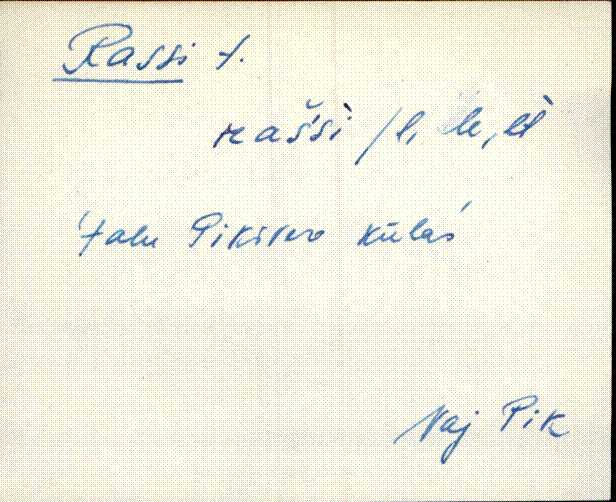 Rassi t.
rašsi /l, le, lt
'talu Pikivero külas
Vaj Pik